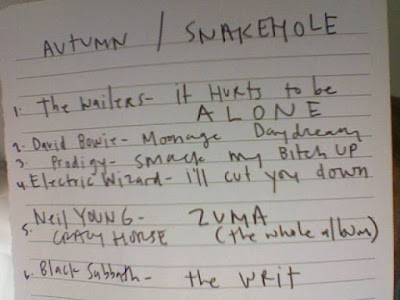 AUTUMN / SNAKEHOLE
1. The Wailers - it HURTS to be
ALONE
2. David Bowie - Moonage Daydream
3. Prodigy - smack my Bitch UP
4. Electric Wizard - i'll cut you down
5. Neil YOUNG - ZUMA
CRAZY HORSE (the whole album)
6. Black Sabbath - the WRIT